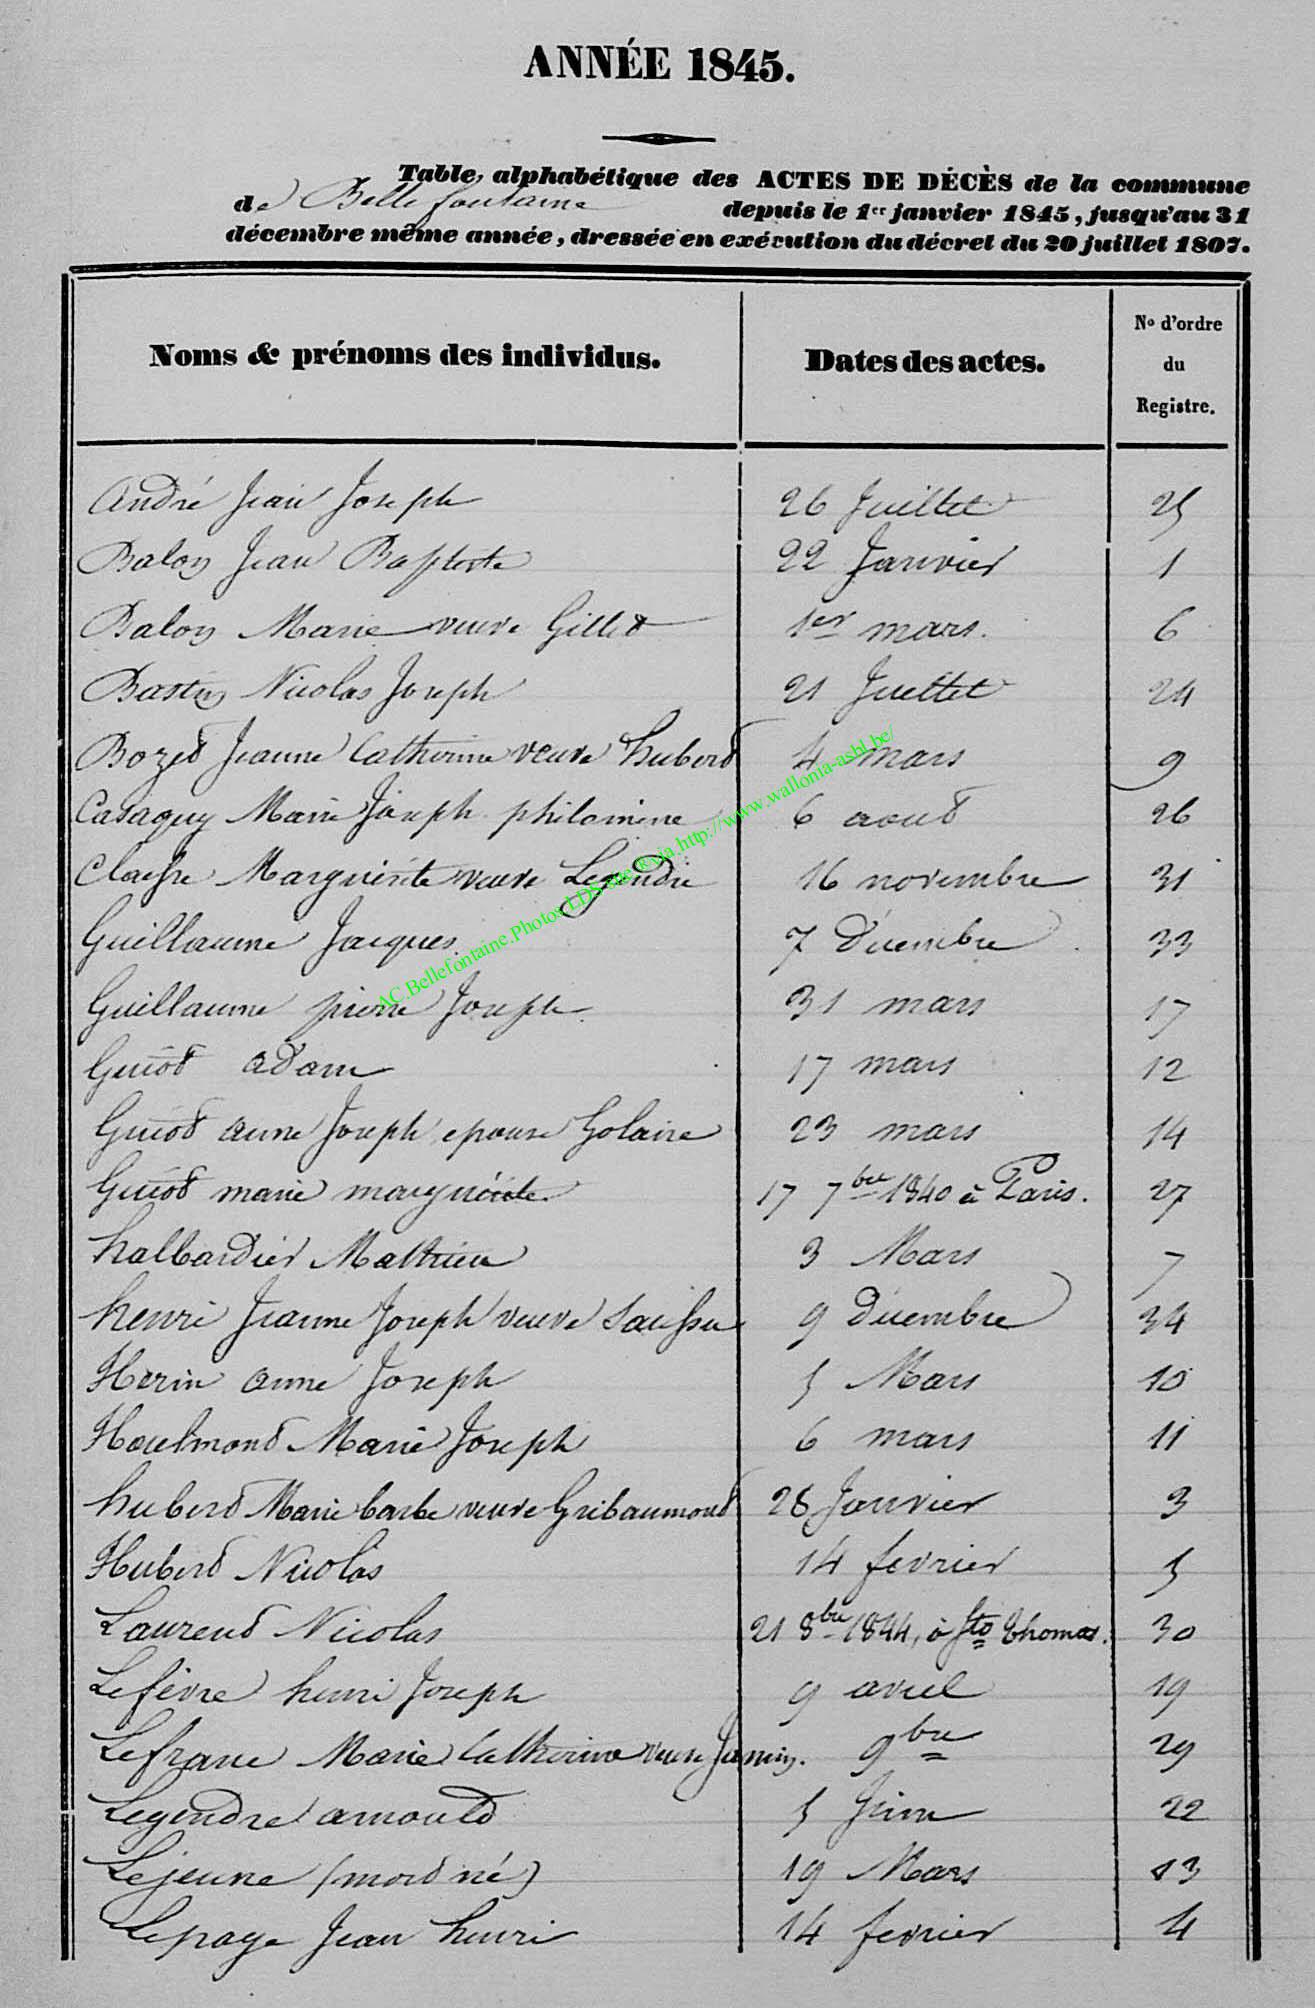 ANNÉE 1845.
Table alphabétique des ACTES DE DÉCÈS de la commune
de Bellefontaine depuis le 1er janvier 1845, jusqu'au 31
décembre même année, dressée en exécution du décret du 20 juillet 1807.
Noms & prénoms des individus. Dates des actes. No d'ordre du Registre.
André Jean Joseph 26 Juillet 25
Balon Jean Baptiste 22 Janvier 1
Balon Marie veuve Gillet 1er mars. 6
Bastin Nicolas Joseph 21 Juillet 24
Bozet Jeanne Catherine veuve hubert 4 mars 9
Casaquy Marie Joseph philomène 6 aout 26
Claesse Marguerite veuve Legendre 16 novembre 31
Guillaume Jacques. 7 Décembre 33
Guillaume pierre Joseph 31 mars 17
Guiot adam 17 mars 12
Guiot anne Joseph epouse Golaire 23 mars 14
Guiot marie marguerite 17 7bre 1840 à Paris. 27
halbardier Mathieu 3 Mars 7
henri Jeanne Joseph veuve 9 Décembre 34
Herin anne Joseph 5 Mars 10
Houlmont Marie Joseph 6 mars 11
hubert Marie barbe veuve Gribaumont 28 Janvier 3
Hubert Nicolas 14 fevrier 5
Laurent Nicolas 21 8bre 1844, à Sto thomas. 30
Lefèvre henri Joseph 9 avril 19
Lefranc Marie Catherine veuve Jamin. 9bre 29
Legendre arnould 5 Juin 22
Lejeune (mort né) 19 Mars 13
Lepage Jean henri 14 fevrier 4
AC.Bellefontaine.Photos LDS via http://www.wallonia-asbl.be/